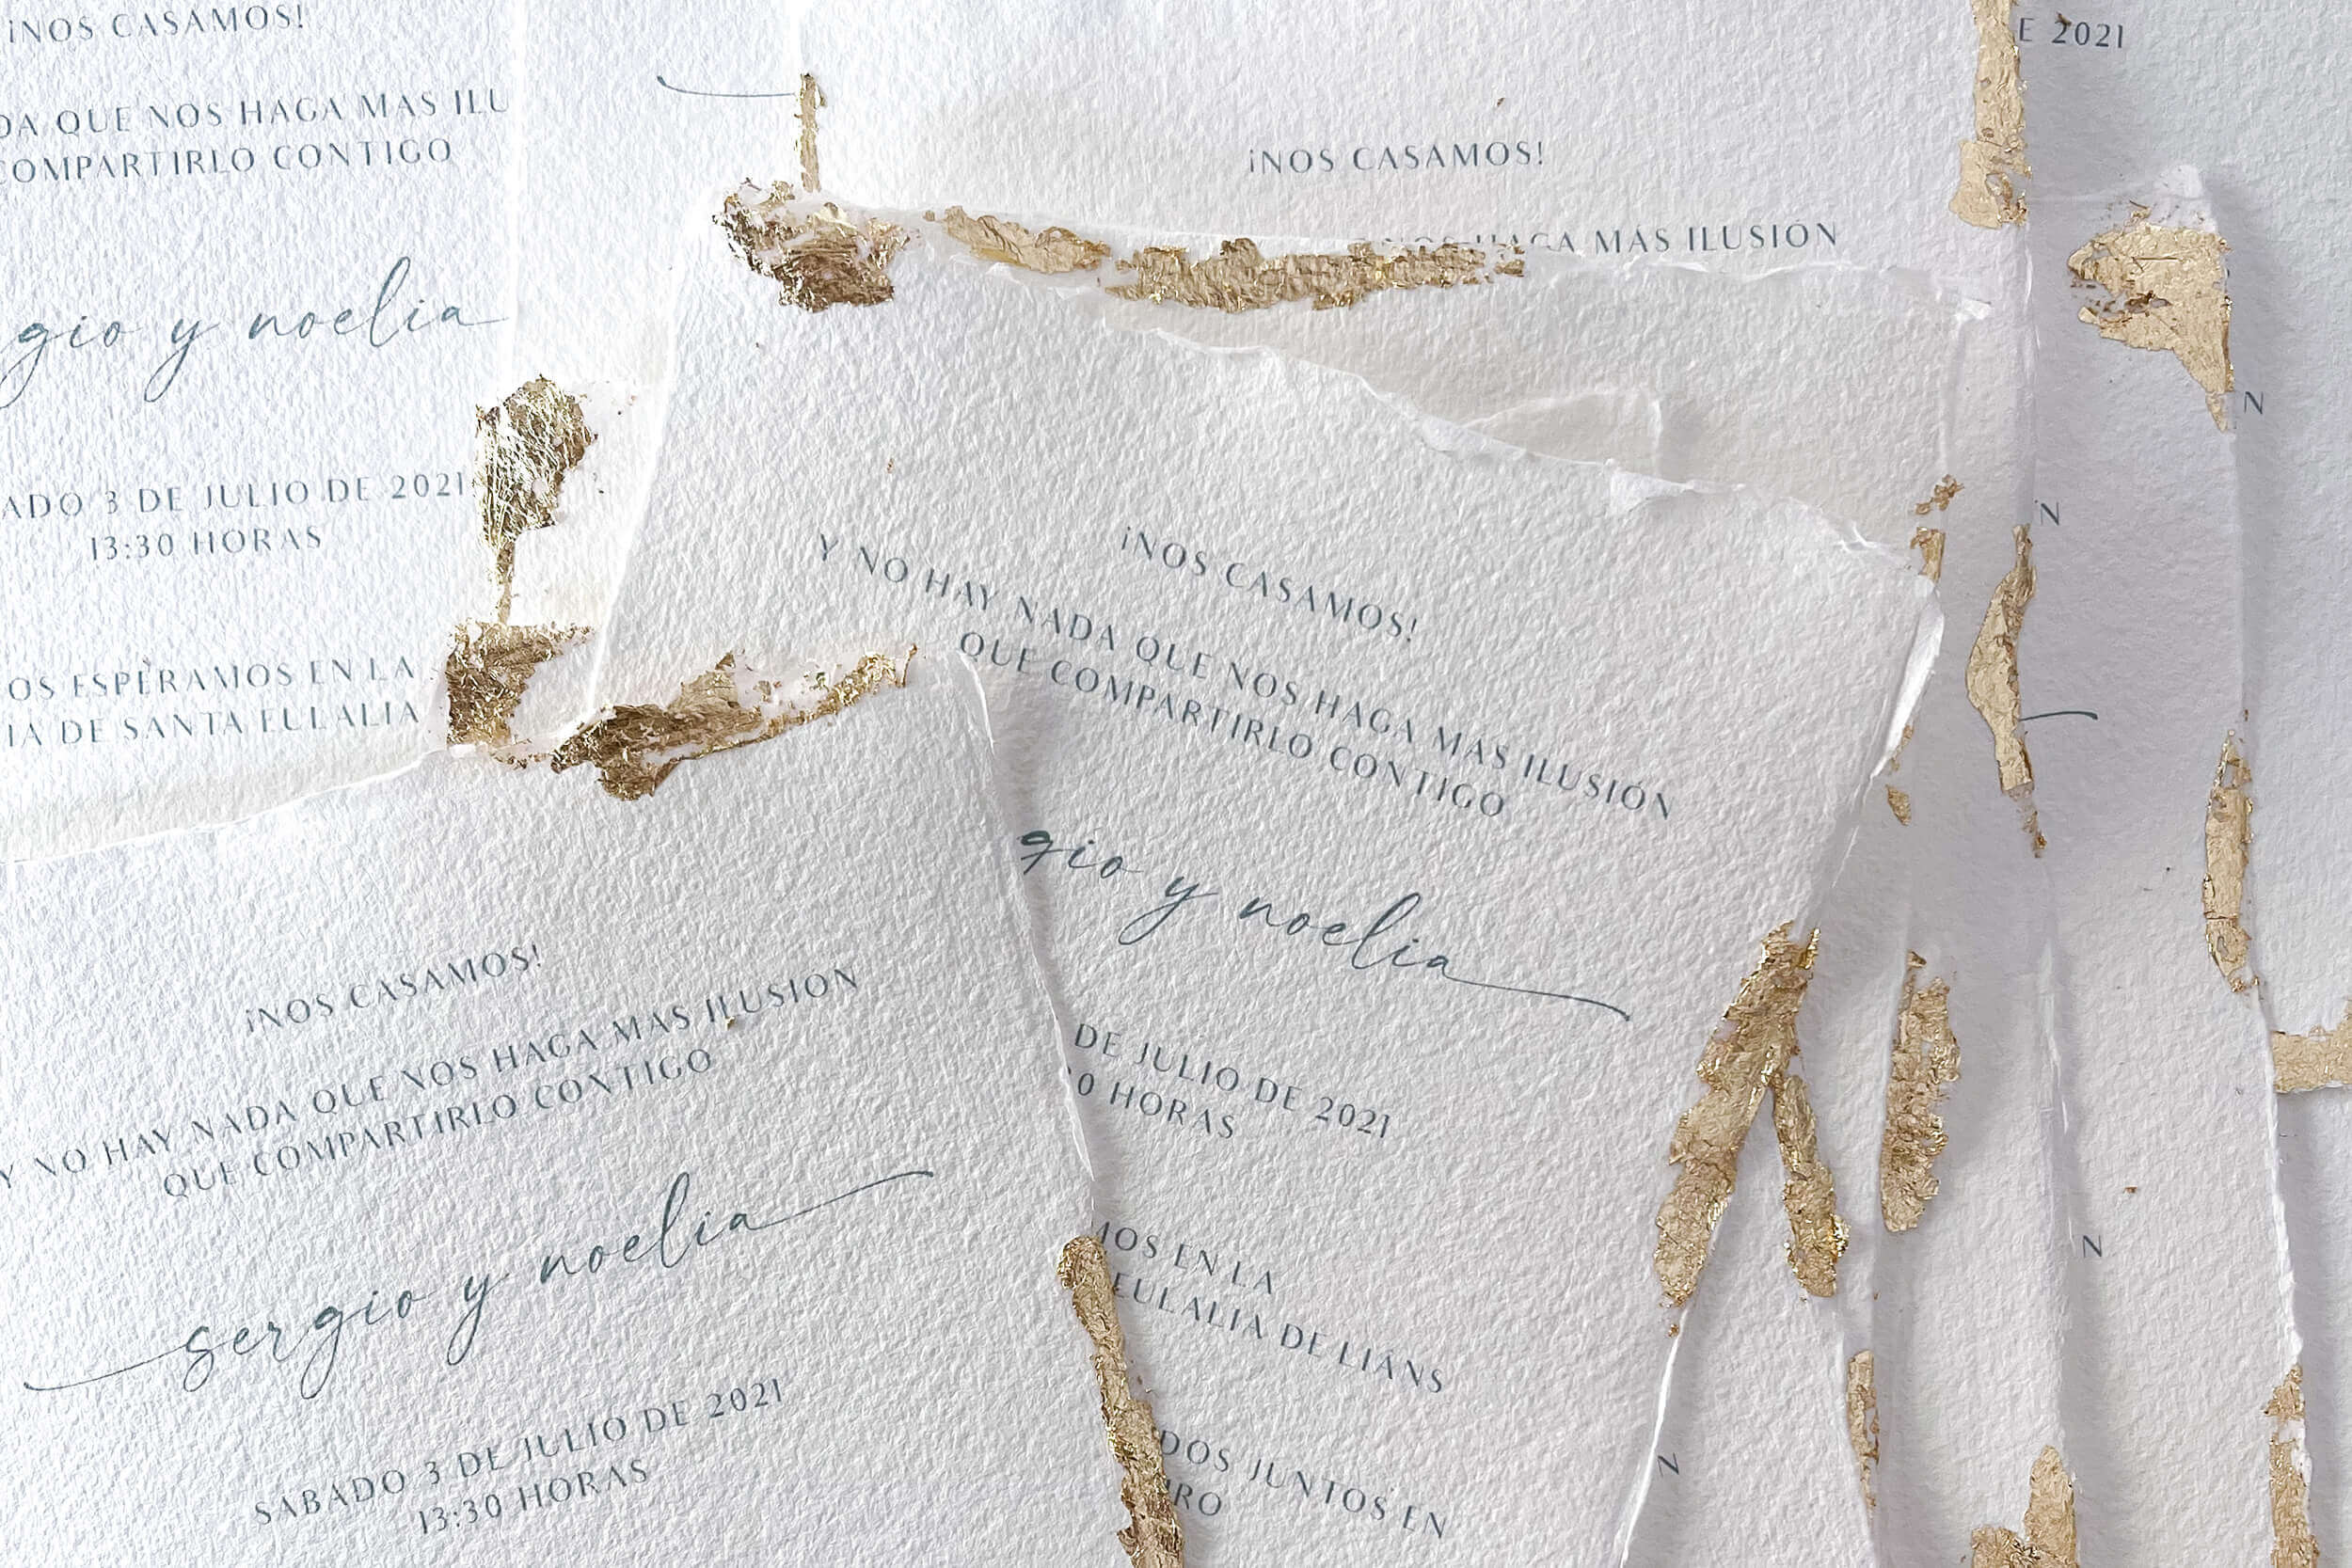 ¡NOS CASAMOS!
QUE NOS HAGA MAS
COMPARTIRLO CONTIGO
y noelia
3 DE JULIO DE 2021
13:30 HORAS
ESPERAMOS EN LA
DE SANTA EULALIA
¡NOS CASAMOS!
MAS ILUSIÓN
2021
N
N
¡NOS CASAMOS!
Y NO HAY NADA QUE NOS HAGA MAS ILUSIÓN
QUE COMPARTIRLO CONTIGO
gio y noelia
DE JULIO DE 2021
HORAS
EN LA
EULALIA DE LIÁNS
JUNTOS EN
¡NOS CASAMOS!
Y NO HAY NADA QUE NOS HAGA MAS ILUSIÓN
QUE COMPARTIRLO CONTIGO
sergio y noelia
SABADO 3 DE JULIO DE 2021
13:30 HORAS
N
N